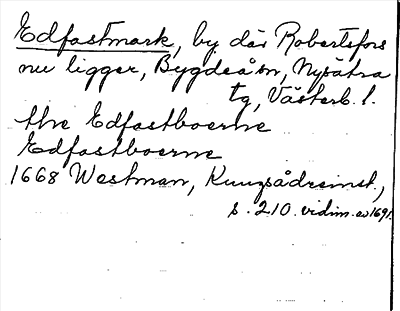 Edfastmark, by där Robertsfors
nu ligger, Bygdeå sn, Nysätra
tg, Västerb. l.
the Edfastboerne
Edfastboerne
1668 Westman, Kungsådreinst.,
s. 210. vidim. av 1691.